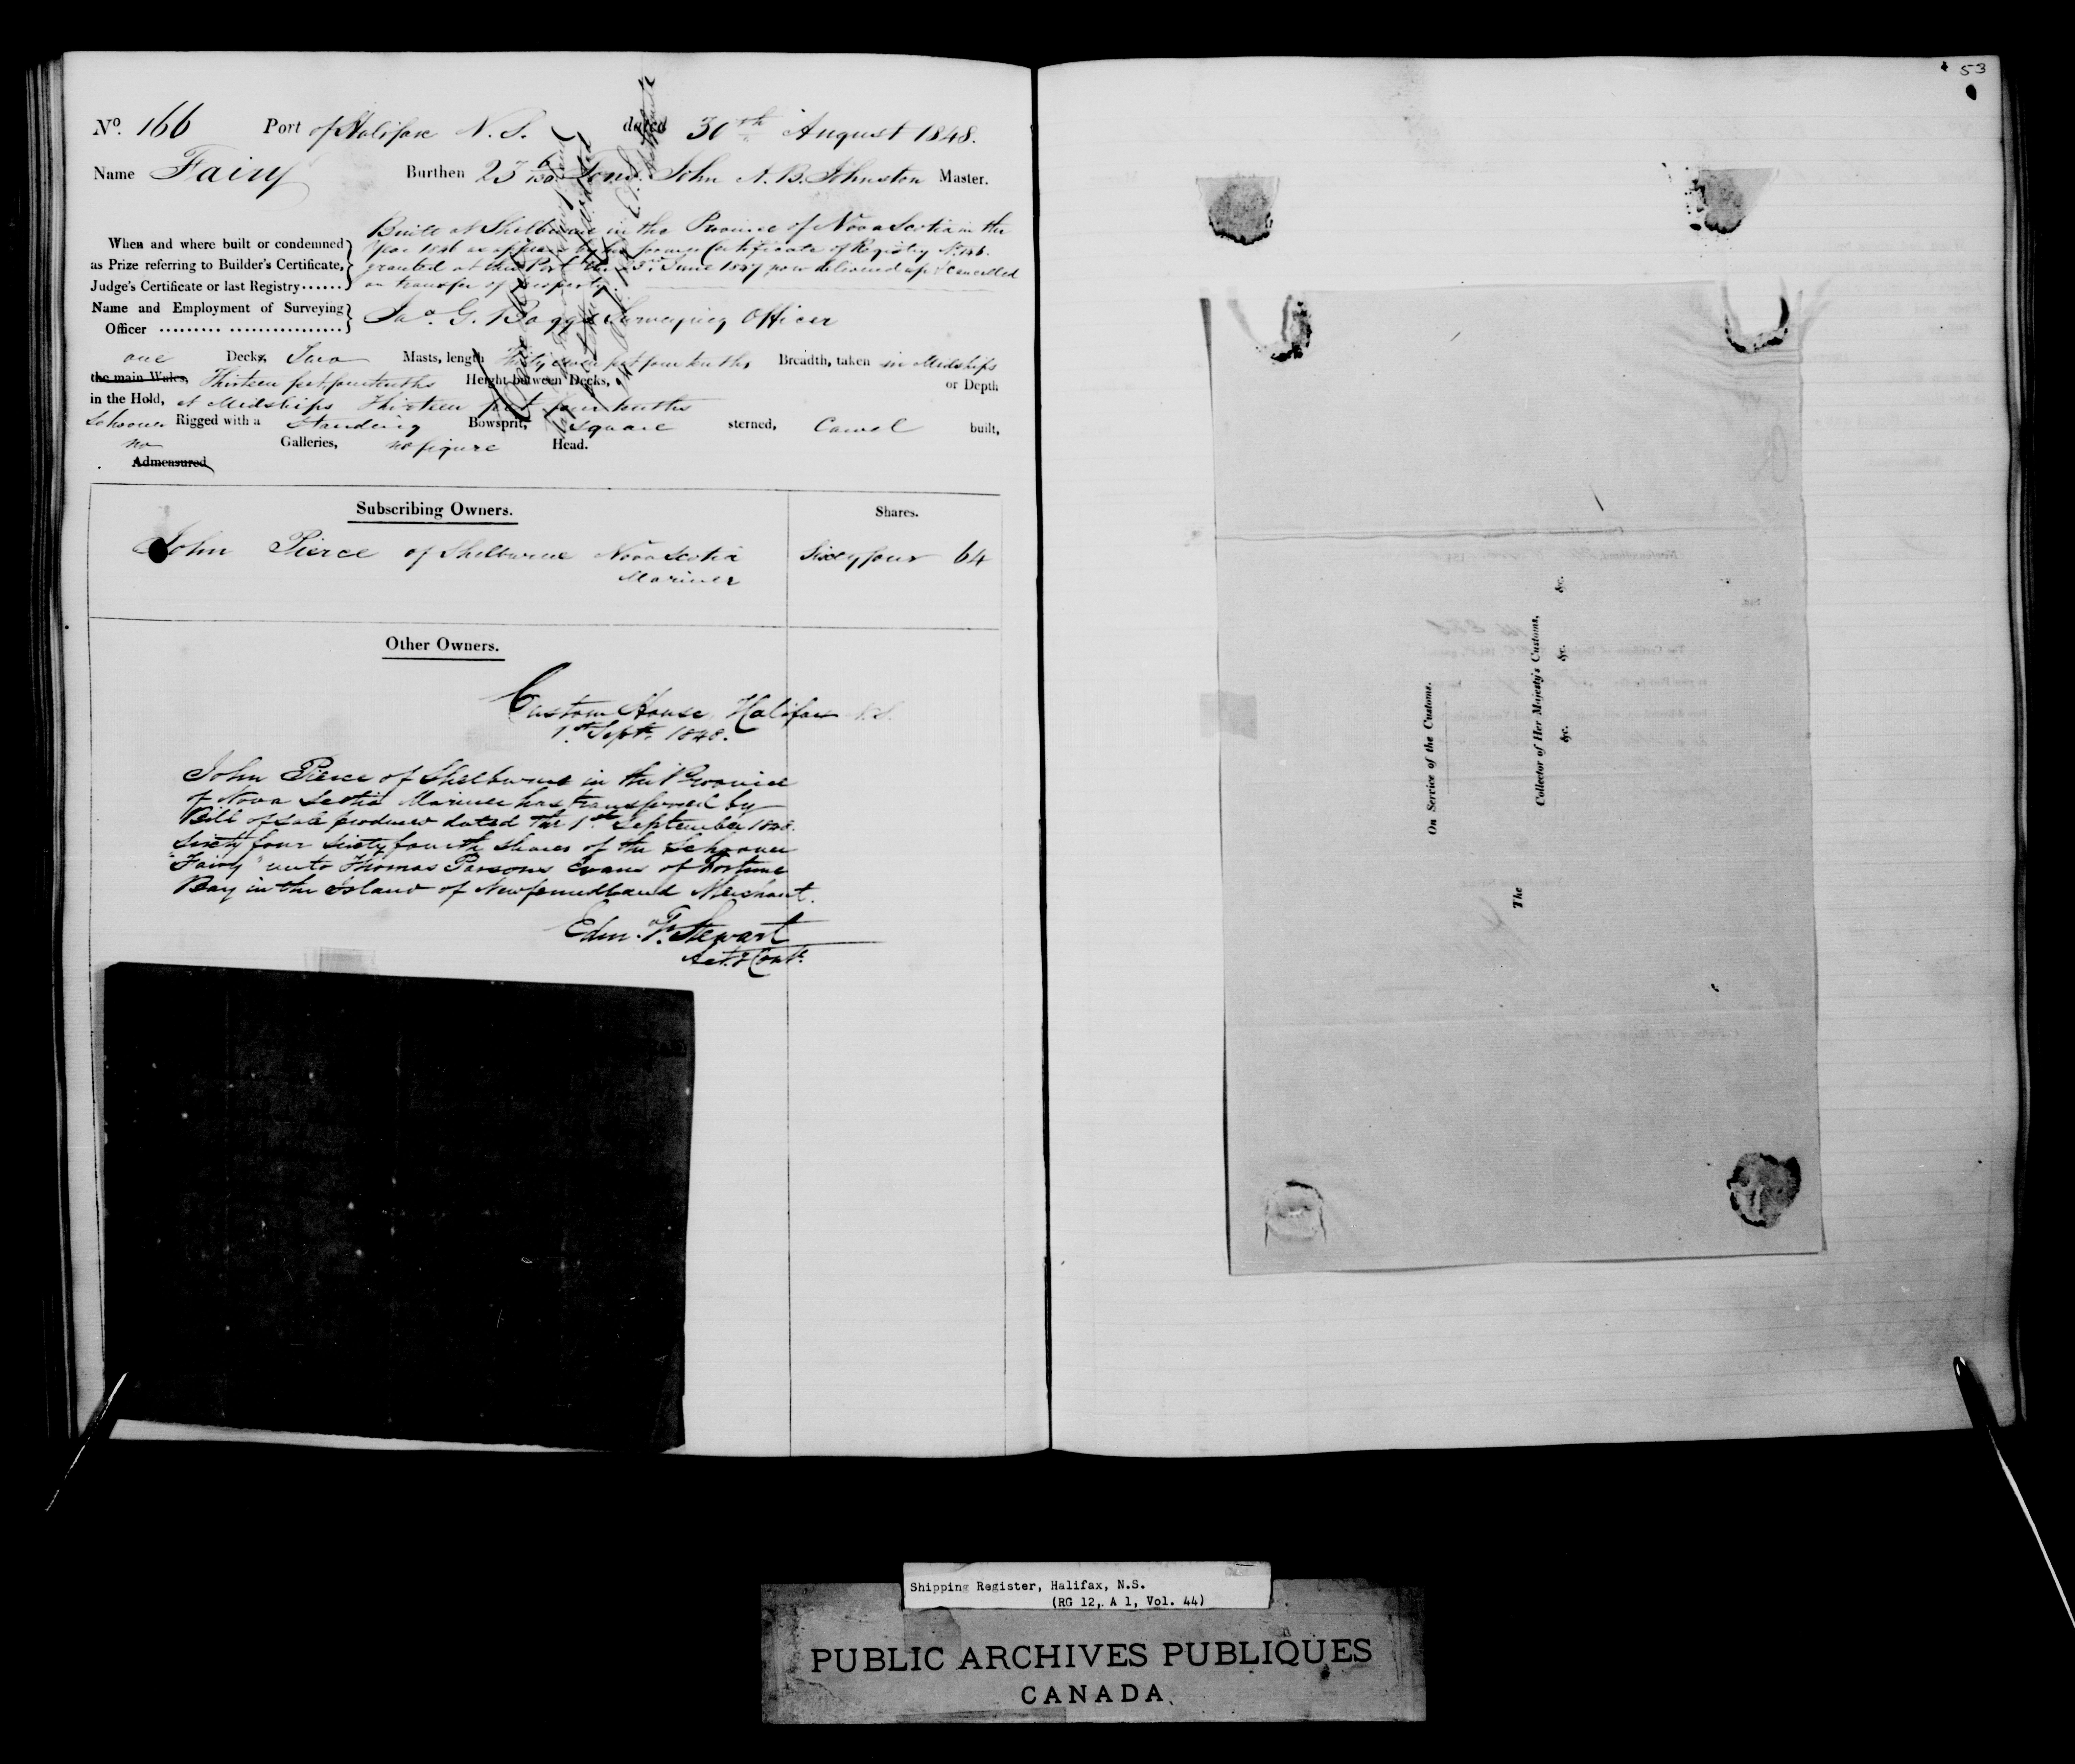 53
No. 166 Port of Halifax N. S. dated 30th August 1848.
Name Fairy Burthen 23 6/130 Tons. John N. B. Johnston Master.
When and where built or condemned
as Prize referring to Builder's Certificate,
Judge's Certificate or last Registry......
Built at Shelburne in the Province of Nova Scotia in the
Year 1846 as appears by her former Certificate of Registry No. 146
granted at this Port the 23rd June 1847 now delivered up & Cancelled
on transfer of property.
Name and Employment of Surveying
Officer ......... ................
Jas. G. Boggs Surveying Officer
one Decks, Two Masts, length feet four tenths, Breadth, taken in Midships
the main Wales, Thirteen feet four tenths Height between Decks, or Depth
in the Hold, at Midships Thirteen feet four tenths
Schooner Rigged with a Standing Bowsprit, square sterned, Carvel built,
no Galleries, no figure Head.
Admeasured
Subscribing Owners. Shares.
John Pierce of Shelburne Nova Scotia Sixty four 64
Mariner
Other Owners.
Custom House, Halifax N.S.
1st Sept. 1848.
John Pierce of Shelburne in the Province
of Nova Scotia Mariner has transferred by
Bill of Sale produced dated the 1st September 1848
Sixty four sixty fourth shares of the Schooner
"Fairy" unto Thomas Parsons Evans of Fortune
Bay in the Island of Newfoundland Merchant.
Edm. F. Stewart
Act. Cont.
On Service of the Customs.
The
Collector of Her Majesty's Customs,
&c. &c. &c.
Shipping Register, Halifax, N.S.
(RG 12, A 1, Vol. 44)
PUBLIC ARCHIVES PUBLIQUES
CANADA